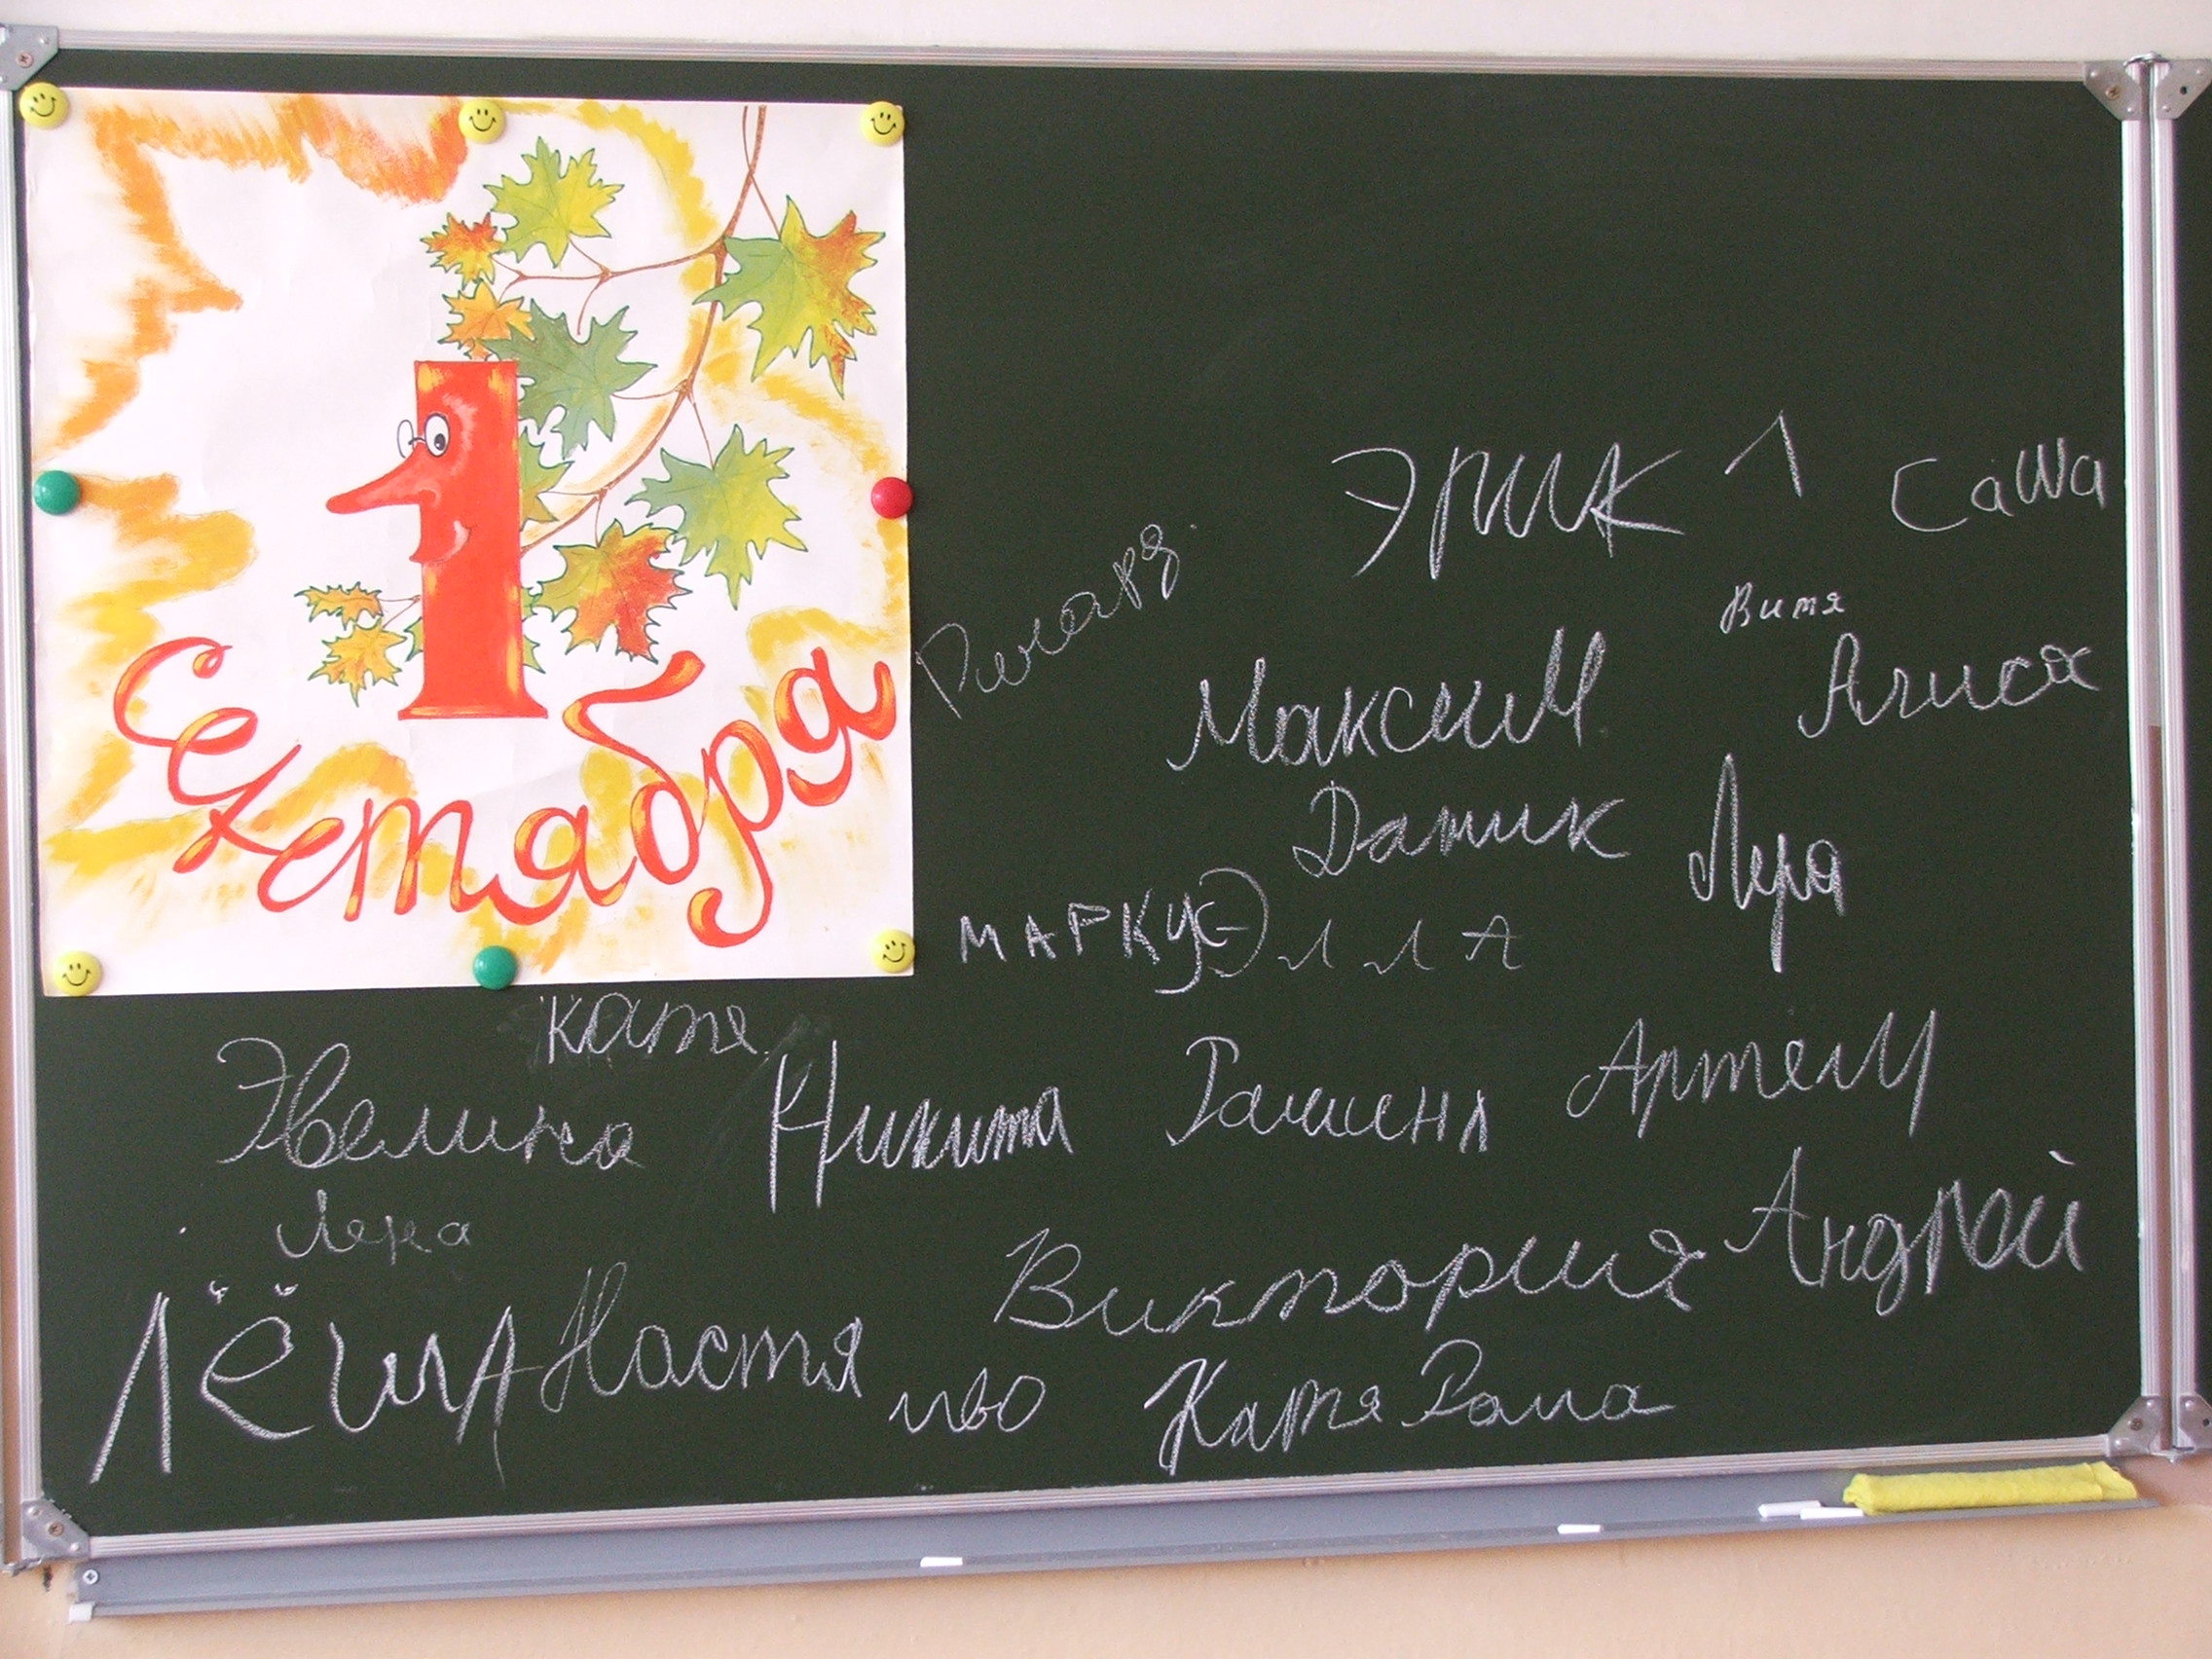 1
Сентября
Эрик 1
Саша
Ричард
Витя
Максим
Алиса
Датик
Лера
МАРКУС
Элла
Катя
Эвелина
Никита
Артем
Лена
Виктория
Андрей
Лёша
Настя
иво
Катя
Рома